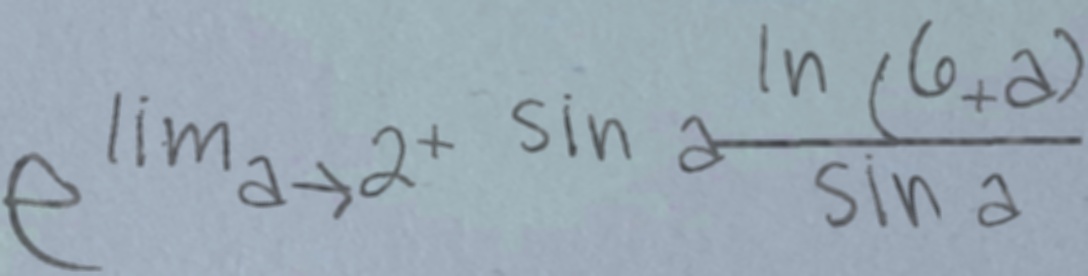 e^{\lim_{a \to 2^+} \sin a \frac{\ln(6+a)}{\sin a}}